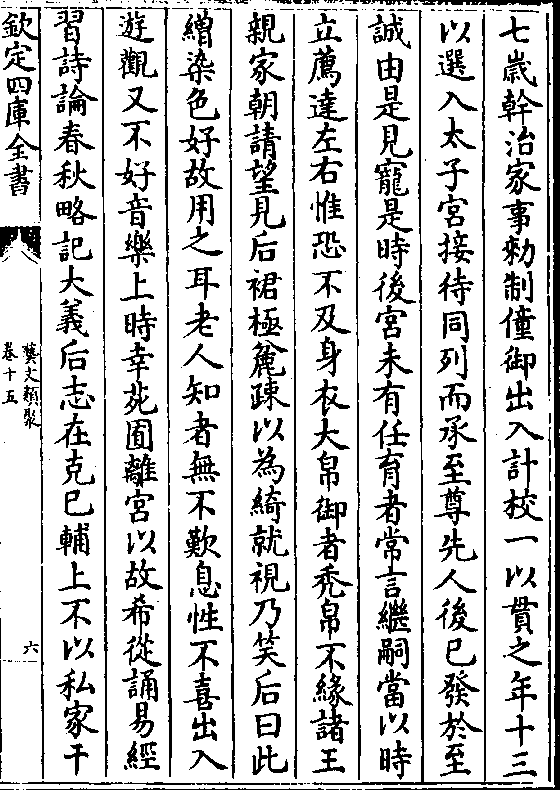 七歲幹治家事勑制僮御出入計校一以貫之年十三
以選入太子宮接待同列而承至尊先人後已發於至
誠由是見寵是時後宮未有任育者常言繼嗣當以時
立薦達左右惟恐不及身衣大帛御者禿帛不緣諸王
親家朝請望見后裙極麄踈以為綺就視乃笑后曰此
繒染色好故用之耳老人知者無不歎息性不喜出入
遊觀又不好音樂上時幸苑囿離宮以故希從誦易經
習詩論春秋略記大義后志在克已輔上不以私家干
欽定四庫全書
藝文類聚
卷十五
六